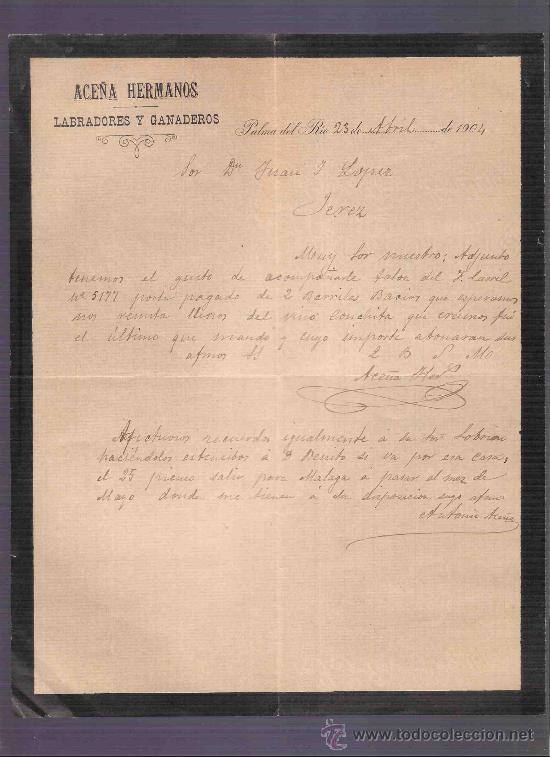 ACEÑA HERMANOS
LABRADORES Y GANADEROS
Palma del Río 23 de Abril de 1904
Sor Dn Juan J Lopez
Jerez
Muy Sor nuestro; Adjunto
tenemos el gusto de acompañarle talon del F. carril
nº 5177 porte pagado de 2 Barriles Bacios que esperamos
nos remita llenos del vino Conchita que creemos fué
el último que mando y cuyo importe abonaran sus
afmos SS 2 B S Mo
Aceña Hers
Afectuosos recuerdos igualmente á su Sor Sobrino
haciendolos estensibos á D Benito si va por esa casa;
el 25 salir para Malaga á pasar el mez de
Mayo donde me tienen á su disposicion suyo afmo
Antonio Aceña
todocoleccion
www.todocoleccion.net